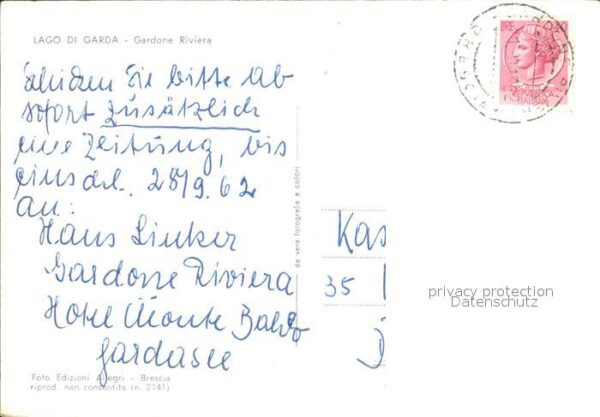 LAGO DI GARDA - Gardone Riviera
Schicken Sie bitte ab
sofort zusätzlich
eine Zeitung, bis
einschl. 28/9.62
an:
Hans Linker
Gardone Riviera
Hotel Monte Baldo
Gardasee
da vera fotografia a colori
Kas
35
privacy protection
Datenschutz
Foto Edizioni Allegri - Brescia
riprod. non consentita (n. 2141)